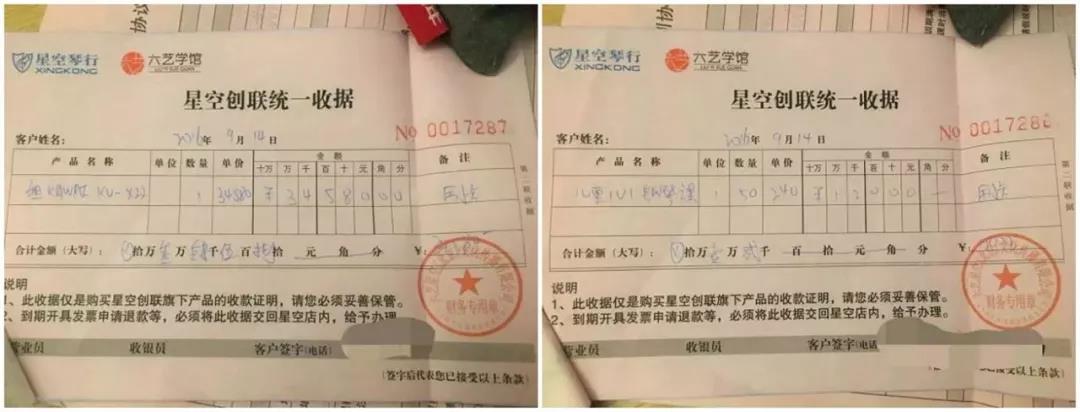 星空琴行 六艺学馆
XINGKONG LIU YI XUE GUAN
星空创联统一收据
客户姓名:
2016年9月14日
No 0017287
产品名称 单位 数量 单价 金额 备注
十万 万 千 百 十 元 角 分
KU-X22 1 34580 ¥ 3 4 5 8 0 0 0
第二联收据
合计金额(大写): 拾万 万 千 百 拾 元 角 分 ¥:
说明
1、此收据仅是购买星空创联旗下产品的收款证明,请您必须妥善保管。
2、到期开具发票申请退款等,必须将此收据交回星空店内,给予办理。
财务专用章
营业员 收银员 客户签字(电话)
(签字后代表您已接受以上条款)
星空琴行 六艺学馆
XINGKONG LIU YI XUE GUAN
星空创联统一收据
客户姓名:
2016年9月14日
No 0017286
产品名称 单位 数量 单价 金额 备注
十万 万 千 百 十 元 角 分
儿童1V1钢琴课 1 50 240 ¥ 1 2 0 0 0
第二联收据
合计金额(大写): 拾万 壹 万 贰 千 百 拾 元 角 分 ¥:
说明
1、此收据仅是购买星空创联旗下产品的收款证明,请您必须妥善保管。
2、到期开具发票申请退款等,必须将此收据交回星空店内,给予办理。
财务专用章
营业员 收银员 客户签字(电话)
(签字后代表您已接受以上条款)